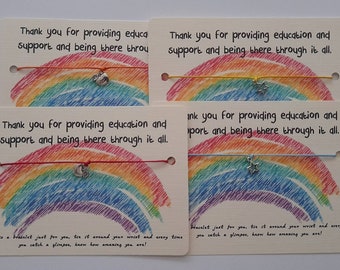 Thank you for providing education and
support and being there through it all.
Thank you for providing education and
support and being there through it all.
Thank you for providing education and
support and being there through it all.
bracelet just for you, tie it around your wrist and every time
you catch a glimpse, know how amazing you are!
Thank you for providing education and
support and being there through it all.
a bracelet just for you, tie it around your wrist and every time
you catch a glimpse, know how amazing you are!